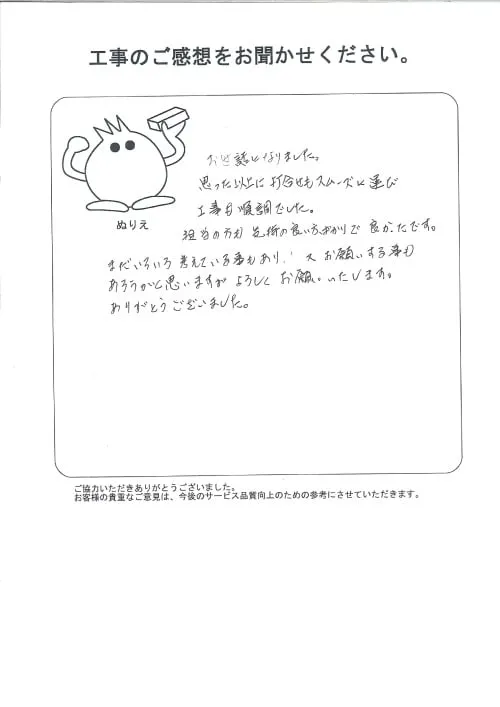 工事のご感想をお聞かせください。
ぬりえ
お世話になりました。
思った以上に打合せもスムーズに運び
工事も順調でした。
担当の方も気持の良い方ばかりで良かったです。
まだいろいろ考えている事もあり、又お願いする事も
あろうかと思いますがよろしくお願いいたします。
ありがとうございました。
ご協力いただきありがとうございました。
お客様の貴重なご意見は、今後のサービス品質向上のための参考にさせていただきます。